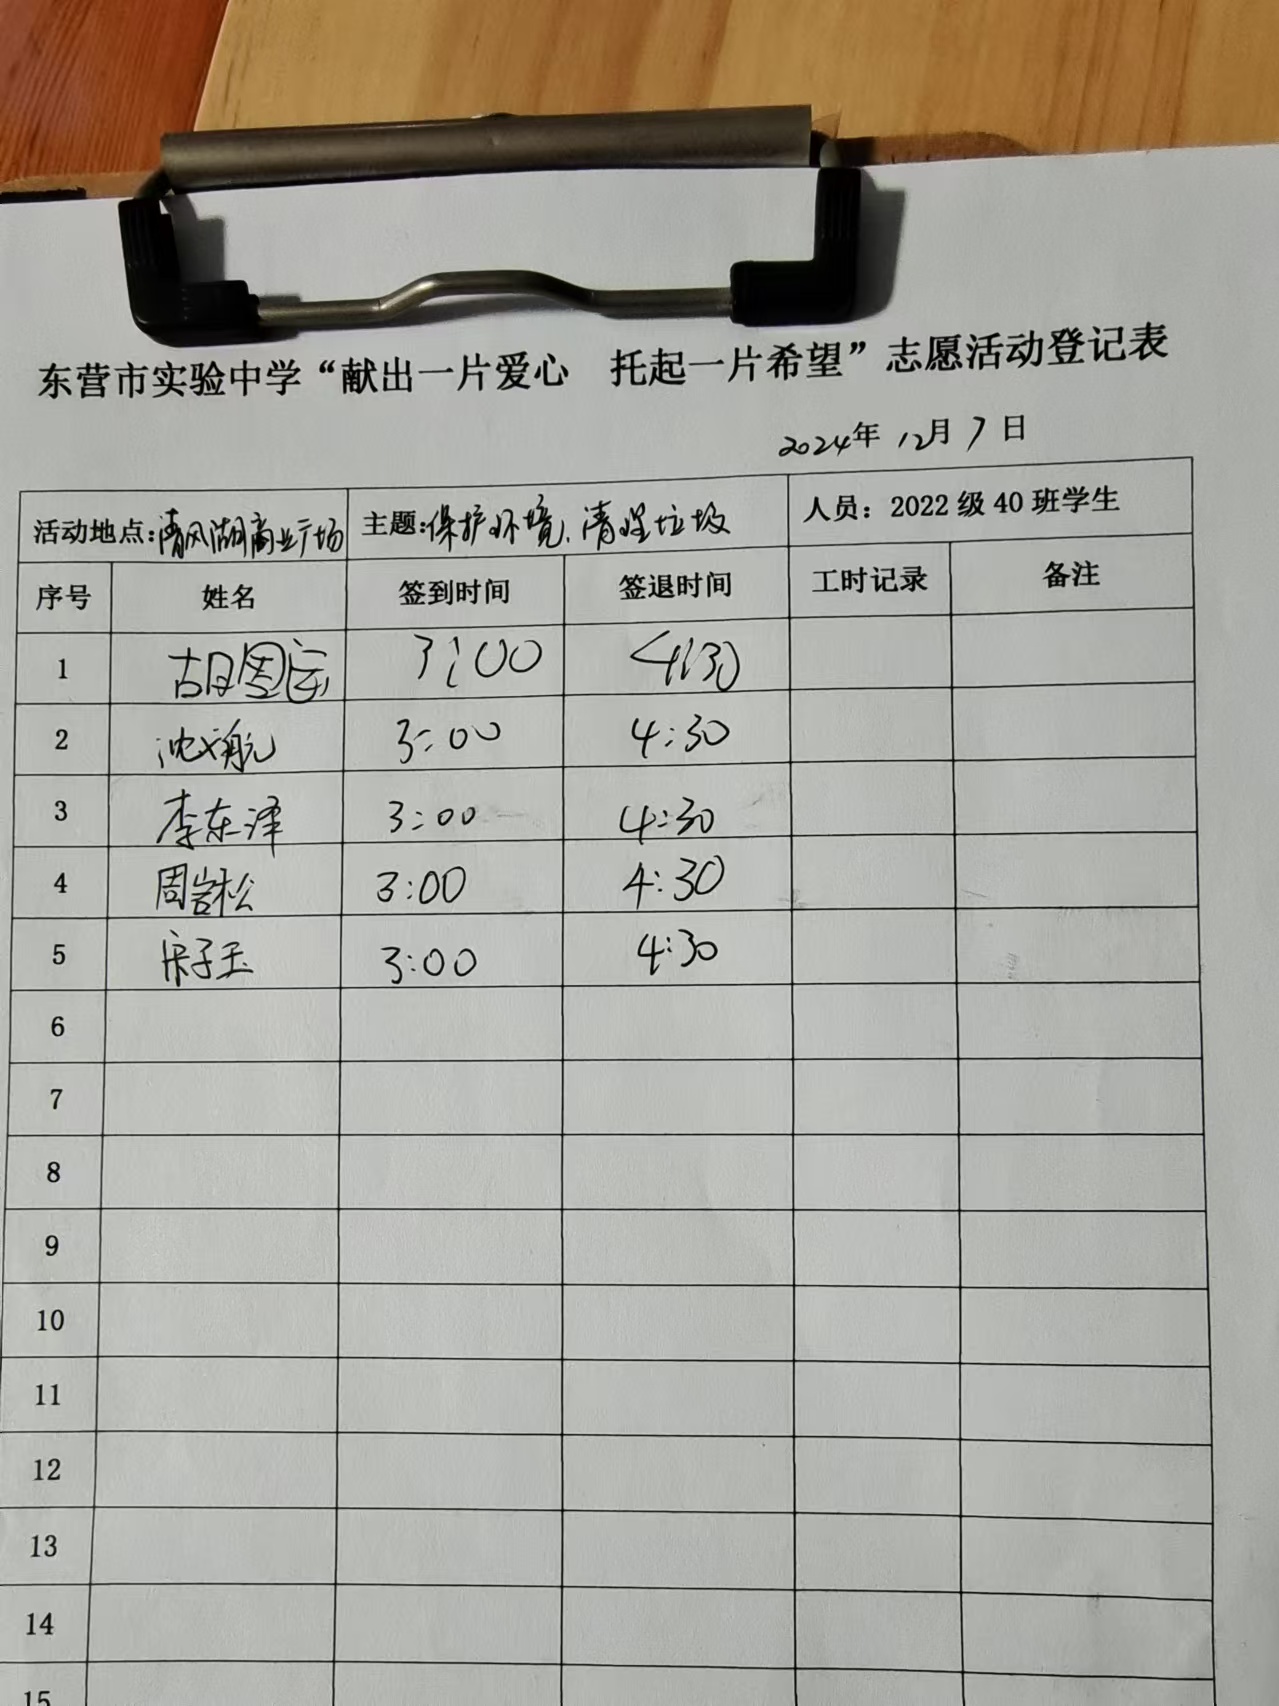 东营市实验中学“献出一片爱心 托起一片希望”志愿活动登记表
2024年 12月 7日
活动地点:清风湖商业广场 主题:保护环境、清理垃圾 人员：2022级40班学生
序号 姓名 签到时间 签退时间 工时记录 备注
1 3:00 4:30
2 3:00 4:30
3 李东泽 3:00 4:30
4 周岩松 3:00 4:30
5 宋子玉 3:00 4:30
6
7
8
9
10
11
12
13
14
15